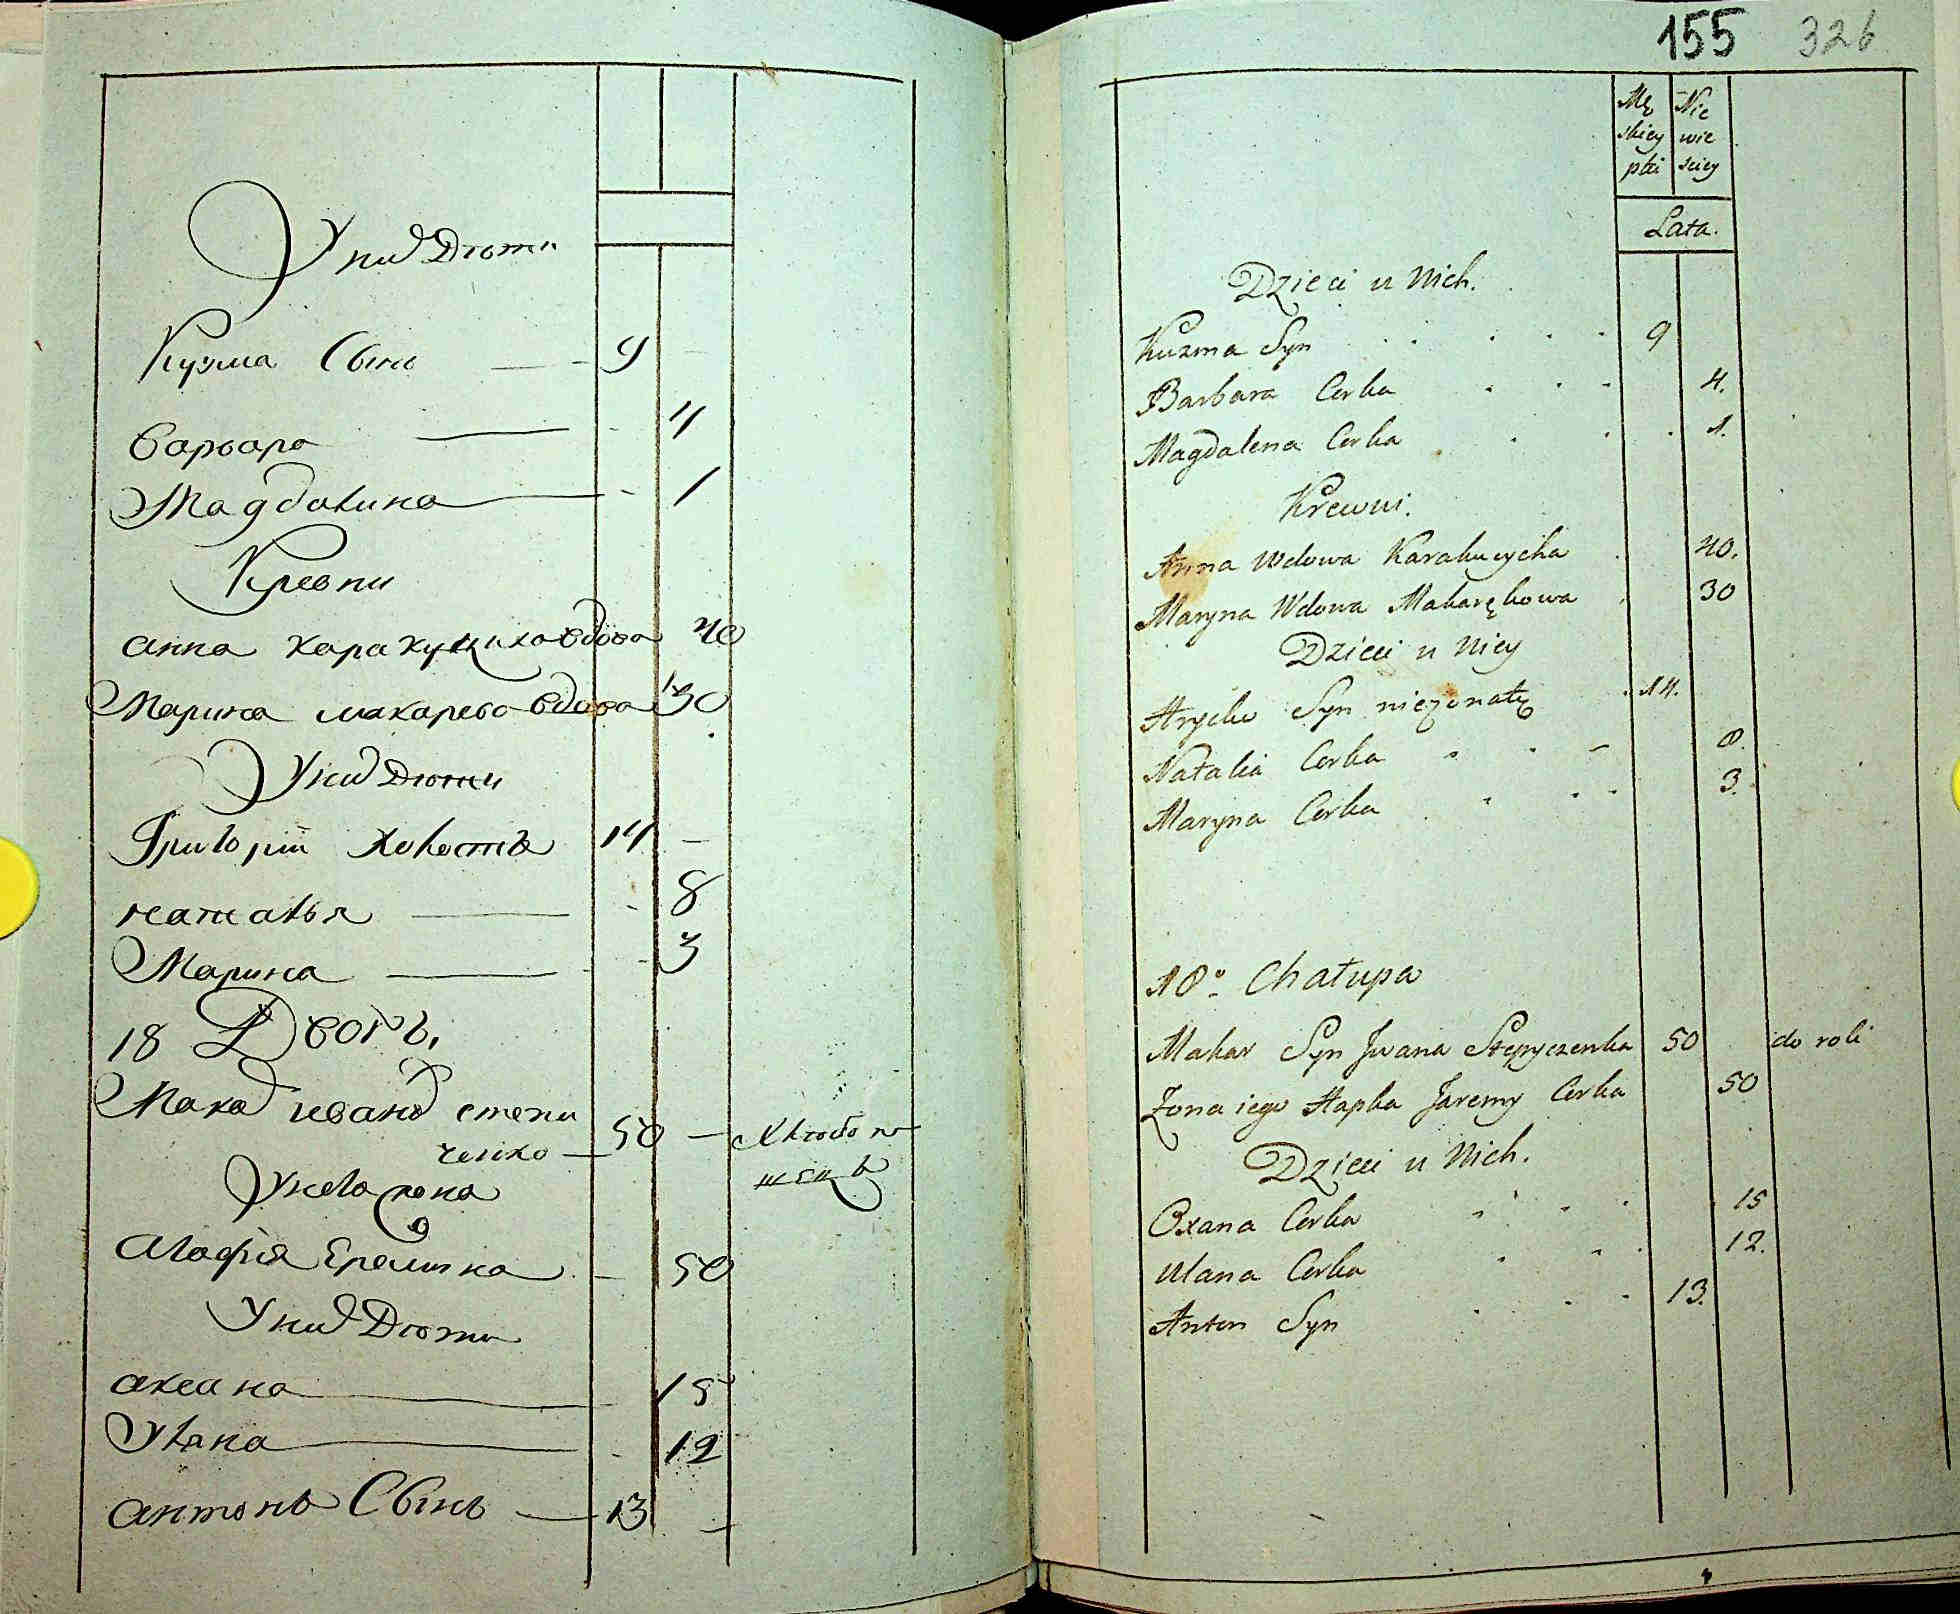 У них Дѣти
Кузма Сынъ — 9
Варвара — 4
Магдалина — 1
Кревни
анна каракуциха вдова 40
Марина макарева вдова 30
У них Дѣти
Григорій холостъ 14 —
наталья — 8
Марина — 3
18 Дворъ,
Макар иванов степи
ченко — 50 — хлѣбопа
шецъ
У него жена
Агафія Еремина — 50
У них Дѣти
аксана — 15
Улана — 12
антонъ Сынъ — 13 —
155 326
Mę Nie
skiey wie
płci sciey
Lata.
Dzieci u Nich.
Kuzma Syn 9
Barbara Corka 4.
Magdalena Corka 1.
Krewni.
Anna Wdowa Karakucycha 40.
Maryna Wdowa Makarękowa 30
Dzieci u Niey
Hryćko Syn nieżonaty 14.
Natalia Corka 8.
Maryna Corka 3.
18º Chałupa
Makar Syn Jwana Stepyczenka 50 do roli
Żona iego Hapka Jaremy Corka 50
Dzieci u Nich.
Oxana Corka 15
Ulana Corka 12.
Anton Syn 13.